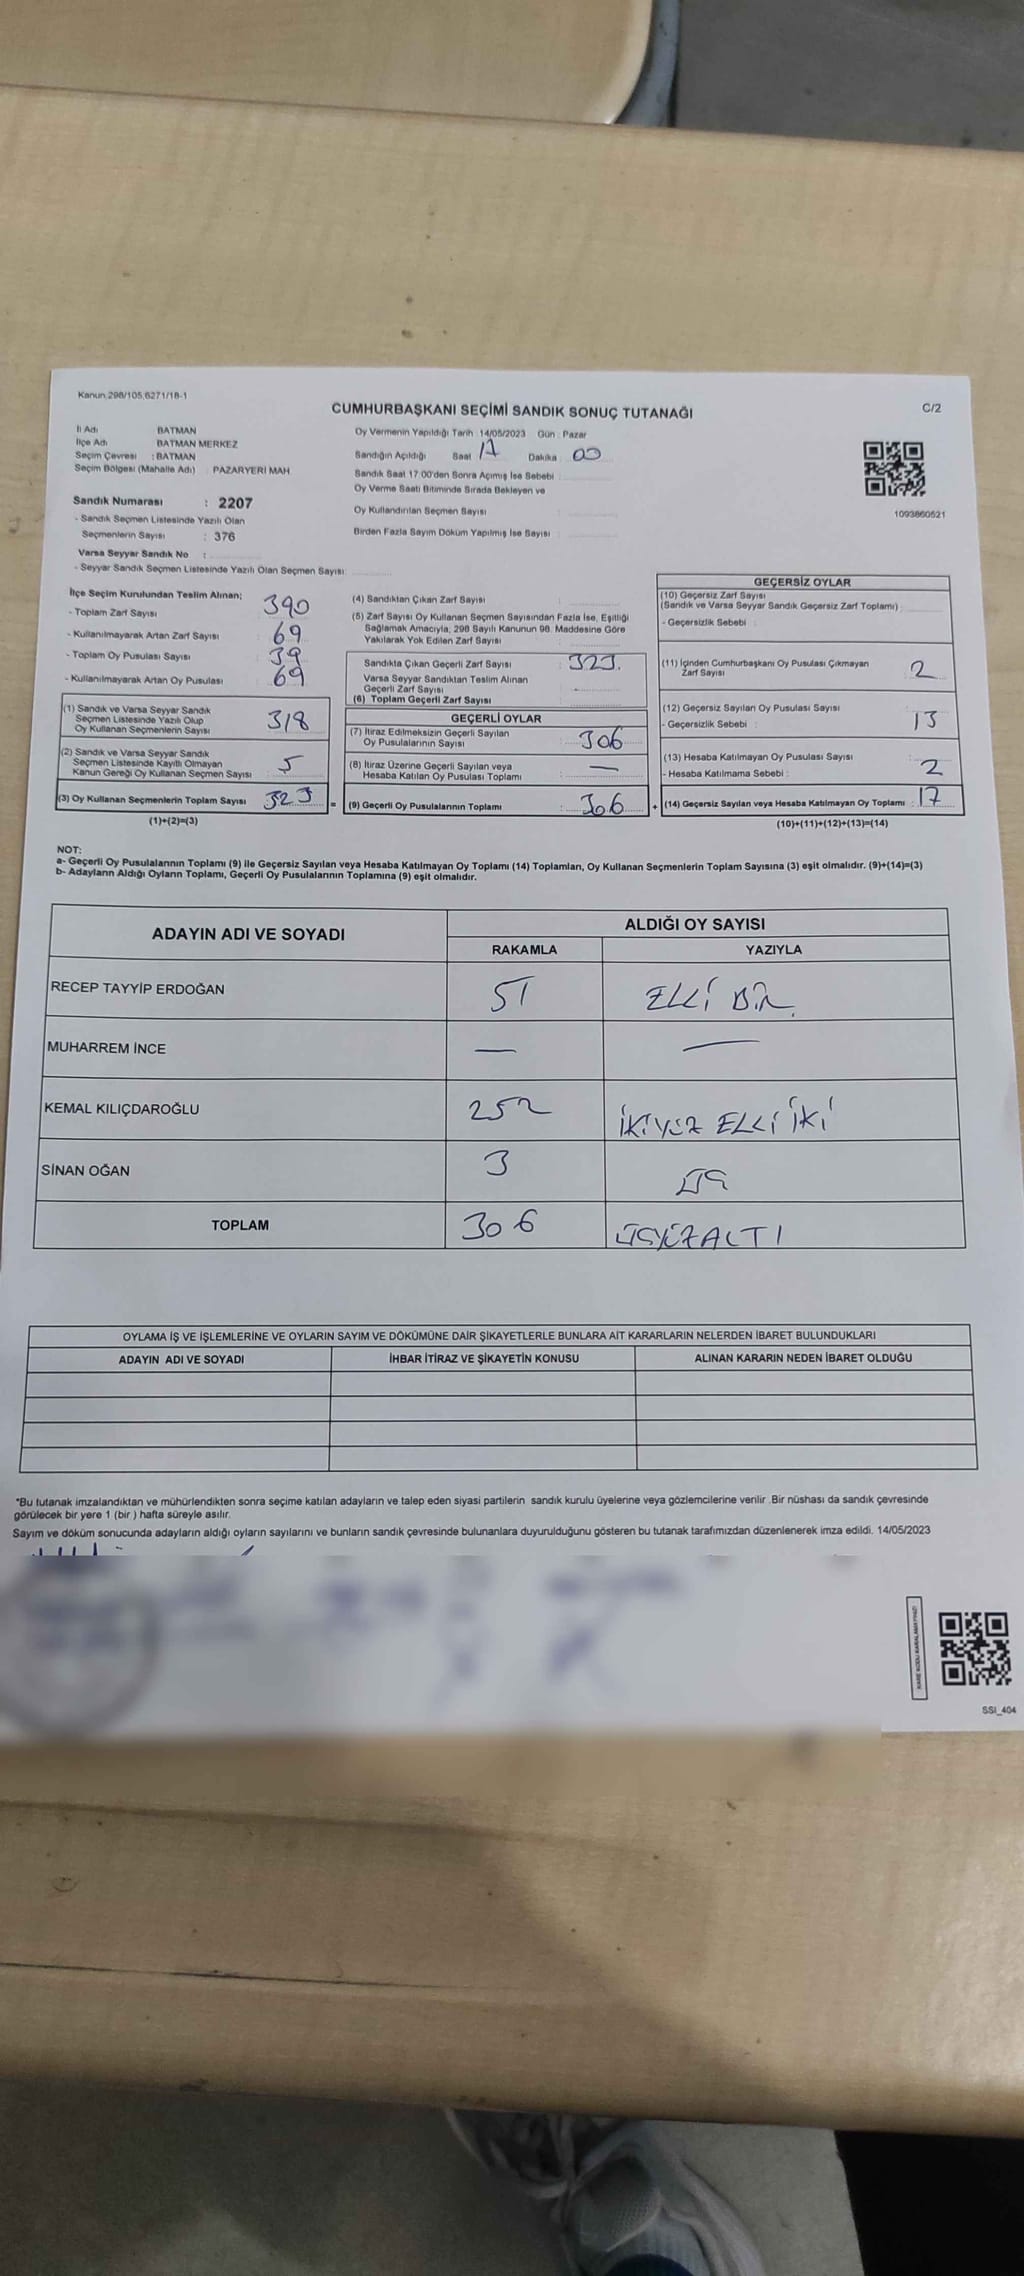 Kanun.298/105,6271/18-1
CUMHURBAŞKANI SEÇİMİ SANDIK SONUÇ TUTANAĞI
C/2
İl Adı BATMAN
İlçe Adı BATMAN MERKEZ
Seçim Çevresi : BATMAN
Seçim Bölgesi (Mahalle Adı) PAZARYERİ MAH.
Oy Vermenin Yapıldığı Tarih :14/05/2023 Gün : Pazar
Sandığın Açıldığı Saat 17 Dakika 00
Sandık Saat 17:00'den Sonra Açımış İse Sebebi :
Oy Verme Saati Bitiminde Sırada Bekleyen ve
Oy Kullandırılan Seçmen Sayısı
Birden Fazla Sayım Döküm Yapılmış İse Sayısı :
1093860521
Sandık Numarası : 2207
- Sandık Seçmen Listesinde Yazılı Olan
Seçmenlerin Sayısı : 376
Varsa Seyyar Sandık No :
- Seyyar Sandık Seçmen Listesinde Yazılı Olan Seçmen Sayısı:
İlçe Seçim Kurulundan Teslim Alınan;
- Toplam Zarf Sayısı 390
- Kullanılmayarak Artan Zarf Sayısı 69
- Toplam Oy Pusulası Sayısı 39
- Kullanılmayarak Artan Oy Pusulası 69
(1) Sandık ve Varsa Seyyar Sandık
Seçmen Listesinde Yazılı Olup
Oy Kullanan Seçmenlerin Sayısı 318
(2) Sandık ve Varsa Seyyar Sandık
Seçmen Listesinde Kayıtlı Olmayan
Kanun Gereği Oy Kullanan Seçmen Sayısı 5
(3) Oy Kullanan Seçmenlerin Toplam Sayısı 323 =
(1)+(2)=(3)
(4) Sandıktan Çıkan Zarf Sayısı
(5) Zarf Sayısı Oy Kullanan Seçmen Sayısından Fazla İse, Eşitliği
Sağlamak Amacıyla, 298 Sayılı Kanunun 98. Maddesine Göre
Yakılarak Yok Edilen Zarf Sayısı
Sandıkta Çıkan Geçerli Zarf Sayısı 323.
Varsa Seyyar Sandıktan Teslim Alınan
Geçerli Zarf Sayısı
(6) Toplam Geçerli Zarf Sayısı
GEÇERLİ OYLAR
(7) İtiraz Edilmeksizin Geçerli Sayılan
Oy Pusulalarının Sayısı : 306
(8) İtiraz Üzerine Geçerli Sayılan veya
Hesaba Katılan Oy Pusulası Toplamı : —
(9) Geçerli Oy Pusulalarının Toplamı : 306 +
GEÇERSİZ OYLAR
(10) Geçersiz Zarf Sayısı
(Sandık ve Varsa Seyyar Sandık Geçersiz Zarf Toplamı)
- Geçersizlik Sebebi
(11) İçinden Cumhurbaşkanı Oy Pusulası Çıkmayan
Zarf Sayısı 2
(12) Geçersiz Sayılan Oy Pusulası Sayısı
- Geçersizlik Sebebi : 13
(13) Hesaba Katılmayan Oy Pusulası Sayısı
- Hesaba Katılmama Sebebi : 2
(14) Geçersiz Sayılan veya Hesaba Katılmayan Oy Toplamı : 17
(10)+(11)+(12)+(13)=(14)
NOT:
a- Geçerli Oy Pusulalarının Toplamı (9) ile Geçersiz Sayılan veya Hesaba Katılmayan Oy Toplamı (14) Toplamları, Oy Kullanan Seçmenlerin Toplam Sayısına (3) eşit olmalıdır. (9)+(14)=(3)
b- Adayların Aldığı Oyların Toplamı, Geçerli Oy Pusulalarının Toplamına (9) eşit olmalıdır.
ADAYIN ADI VE SOYADI ALDIĞI OY SAYISI
RAKAMLA YAZIYLA
RECEP TAYYİP ERDOĞAN 51 ELLİ BİR
MUHARREM İNCE — —
KEMAL KILIÇDAROĞLU 252 İKİYÜZ ELLİ İKİ
SİNAN OĞAN 3 ÜÇ
TOPLAM 306 ÜÇYÜZALTI
OYLAMA İŞ VE İŞLEMLERİNE VE OYLARIN SAYIM VE DÖKÜMÜNE DAİR ŞİKAYETLERLE BUNLARA AİT KARARLARIN NELERDEN İBARET BULUNDUKLARI
ADAYIN ADI VE SOYADI İHBAR İTİRAZ VE ŞİKAYETİN KONUSU ALINAN KARARIN NEDEN İBARET OLDUĞU
*Bu tutanak imzalandıktan ve mühürlendikten sonra seçime katılan adayların ve talep eden siyasi partilerin sandık kurulu üyelerine veya gözlemcilerine verilir. Bir nüshası da sandık çevresinde
görülecek bir yere 1 (bir ) hafta süreyle asılır.
Sayım ve döküm sonucunda adayların aldığı oyların sayılarını ve bunların sandık çevresinde bulunanlara duyurulduğunu gösteren bu tutanak tarafımızdan düzenlenerek imza edildi. 14/05/2023
KARE KODU KARALAMAYINIZ!
SSI_404